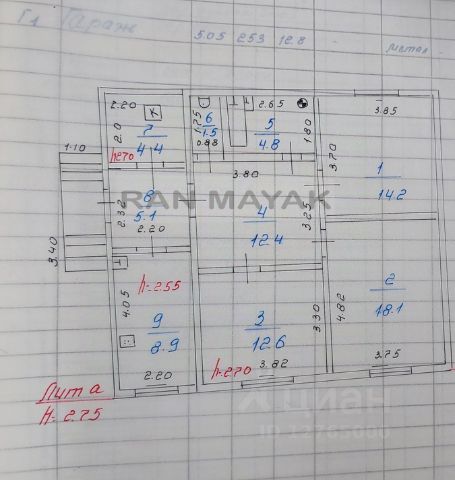 Г1 Гараж 5.05 253 12.8 - метал
2.20 К 2.65 3.85
2.0 7 4.4 1.75 6 1.5 5 4.8 1.80
h=270 0.88
1.10 3.80 3.70 1 14.2
RAN MAYAK
2.32 8 5.1 4 12.4 3.25
2.20
3.40
h=2.55 2 18.1
4.05 3.30 4.82
9 8.9 3 12.6
2.20 h=2.70 3.82 3.75
Лита
H=2.75
циан
ID 12765000